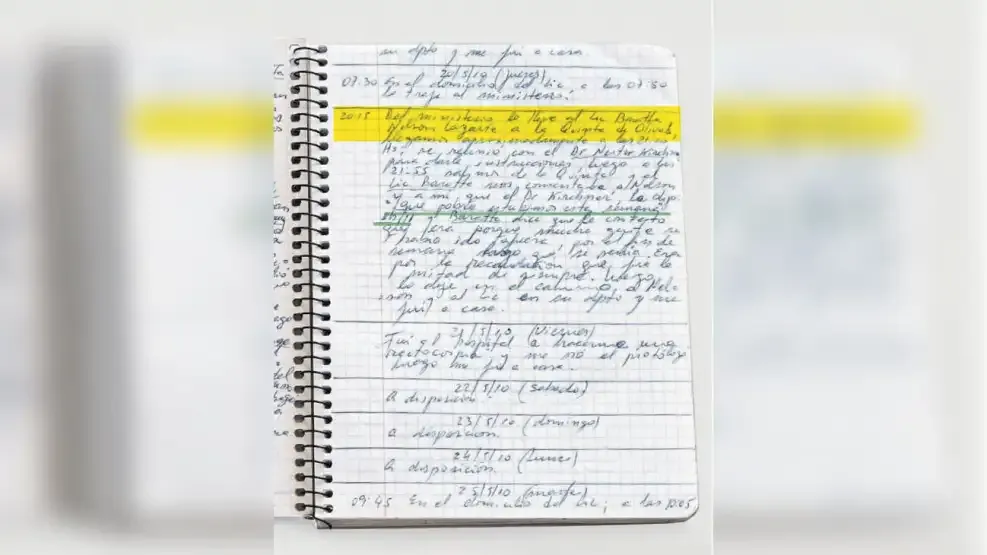 su dpto y me fui a casa
20/5/10 (jueves)
07:30 En el domicilio del Lic a las 07:50
lo traje al ministerio.
20:15 Del ministerio lo lleve al Lic Baratta
Nelson Lazarte a la Quinta de Olivos,
llegamos aproximadamente a las 21:00
Hs; se reunió con el Dr Nestor Kirchner
para darle instrucciones, luego a las
21:55 salimos de la Quinta y el
Lic Baratta nos comentaba a Nelson
y a mi que el Dr Kirchner le dijo
"que pobre estuvimos esta semana"
y Baratta dice que le contesto
que era porque mucha gente se
habia ido afuera por el fin de
semana largo
por la recaudation que fue la
mitad de siempre. Luego
lo deje, en el camino, a Nel-
son y al Lic en su dpto y me
fui a casa.
21/5/10 (Viernes)
Fui al hospital a hacerme una
y me vio el proctologo
luego me fui a casa.
22/5/10 (Sabado)
A disposicion.
23/5/10 (domingo)
a disposicion.
24/5/10 (Lunes)
A disposicion.
25/5/10 (martes)
09:45 En el domicilio del Lic; a las 10:05